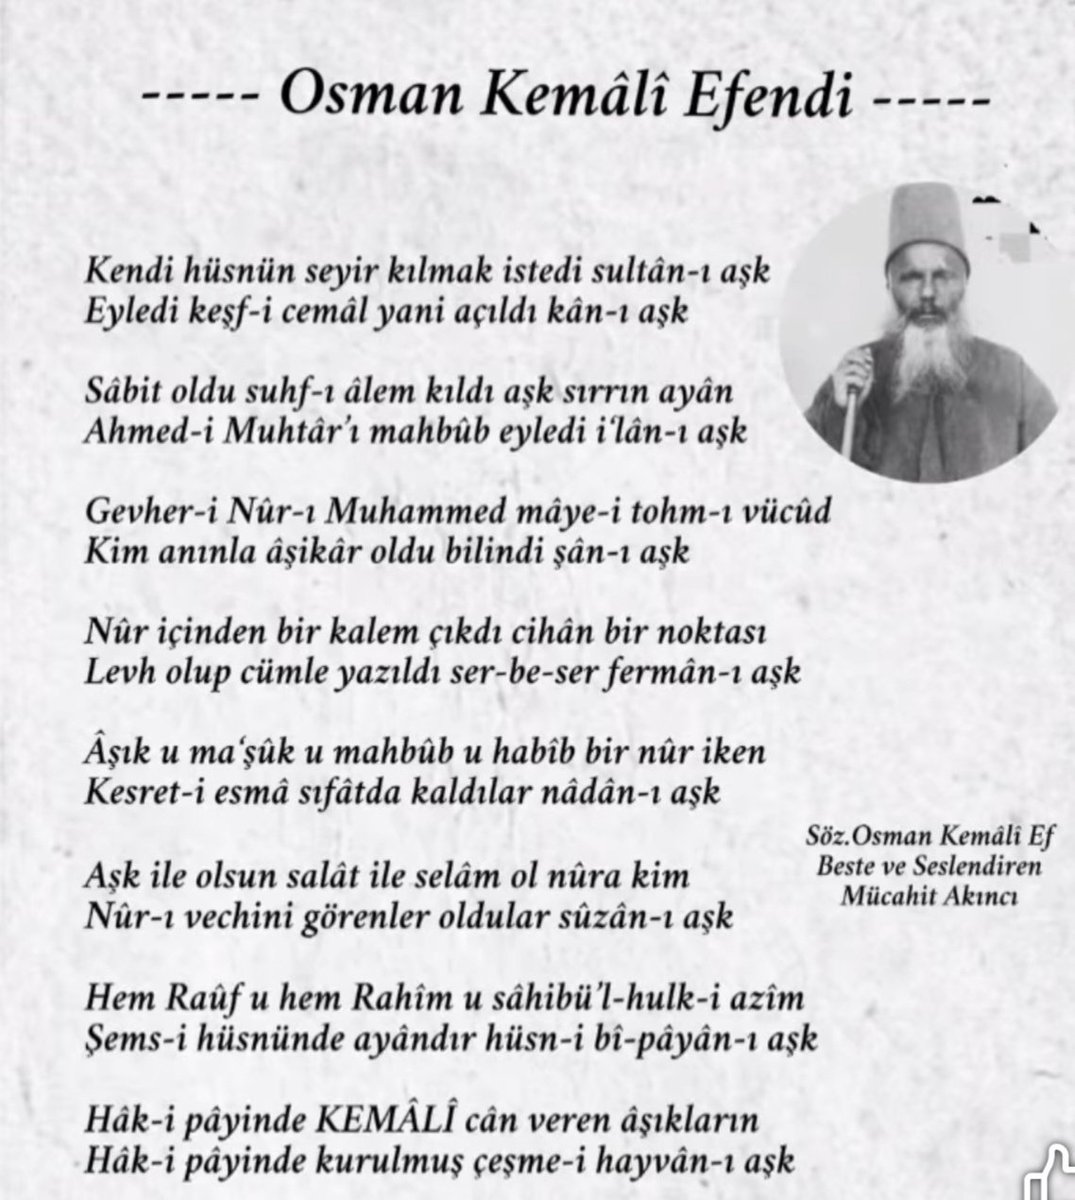 ----- Osman Kemâlî Efendi -----
Kendi hüsnün seyir kılmak istedi sultân-ı aşk
Eyledi keşf-i cemâl yani açıldı kân-ı aşk
Sâbit oldu suhf-ı âlem kıldı aşk sırrın ayân
Ahmed-i Muhtâr’ı mahbûb eyledi i‘lân-ı aşk
Gevher-i Nûr-ı Muhammed mâye-i tohm-ı vücûd
Kim anınla âşikâr oldu bilindi şân-ı aşk
Nûr içinden bir kalem çıkdı cihân bir noktası
Levh olup cümle yazıldı ser-be-ser fermân-ı aşk
Âşık u ma‘şûk u mahbûb u habîb bir nûr iken
Kesret-i esmâ sıfâtda kaldılar nâdân-ı aşk
Aşk ile olsun salât ile selâm ol nûra kim
Nûr-ı vechini görenler oldular sûzân-ı aşk
Hem Raûf u hem Rahîm u sâhibü’l-hulk-i azîm
Şems-i hüsnünde ayândır hüsn-i bî-pâyân-ı aşk
Hâk-i pâyinde KEMÂLÎ cân veren âşıkların
Hâk-i pâyinde kurulmuş çeşme-i hayvân-ı aşk
Söz.Osman Kemâlî Ef
Beste ve Seslendiren
Mücahit Akıncı